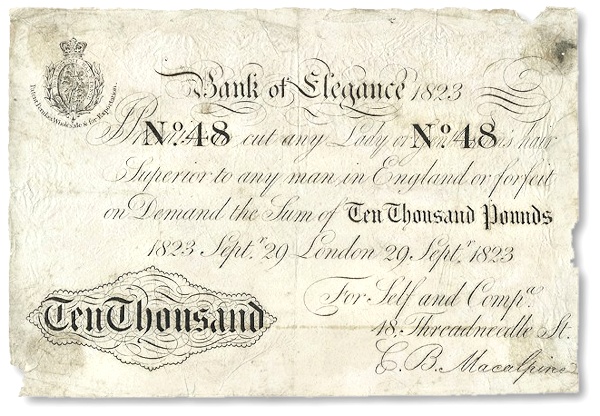 Patent Perukes Wholesale & for Exportation.
Bank of Elegance 1823
I Promise to cut any Lady or Gentleman's hair
No. 48 No. 48
Superior to any man in England or forfeit
on Demand the Sum of Ten Thousand Pounds
1823 Septr. 29 London 29 Septr. 1823
For Self and Compa.
Ten Thousand
48. Threadneedle St.
C. B. Macalpine